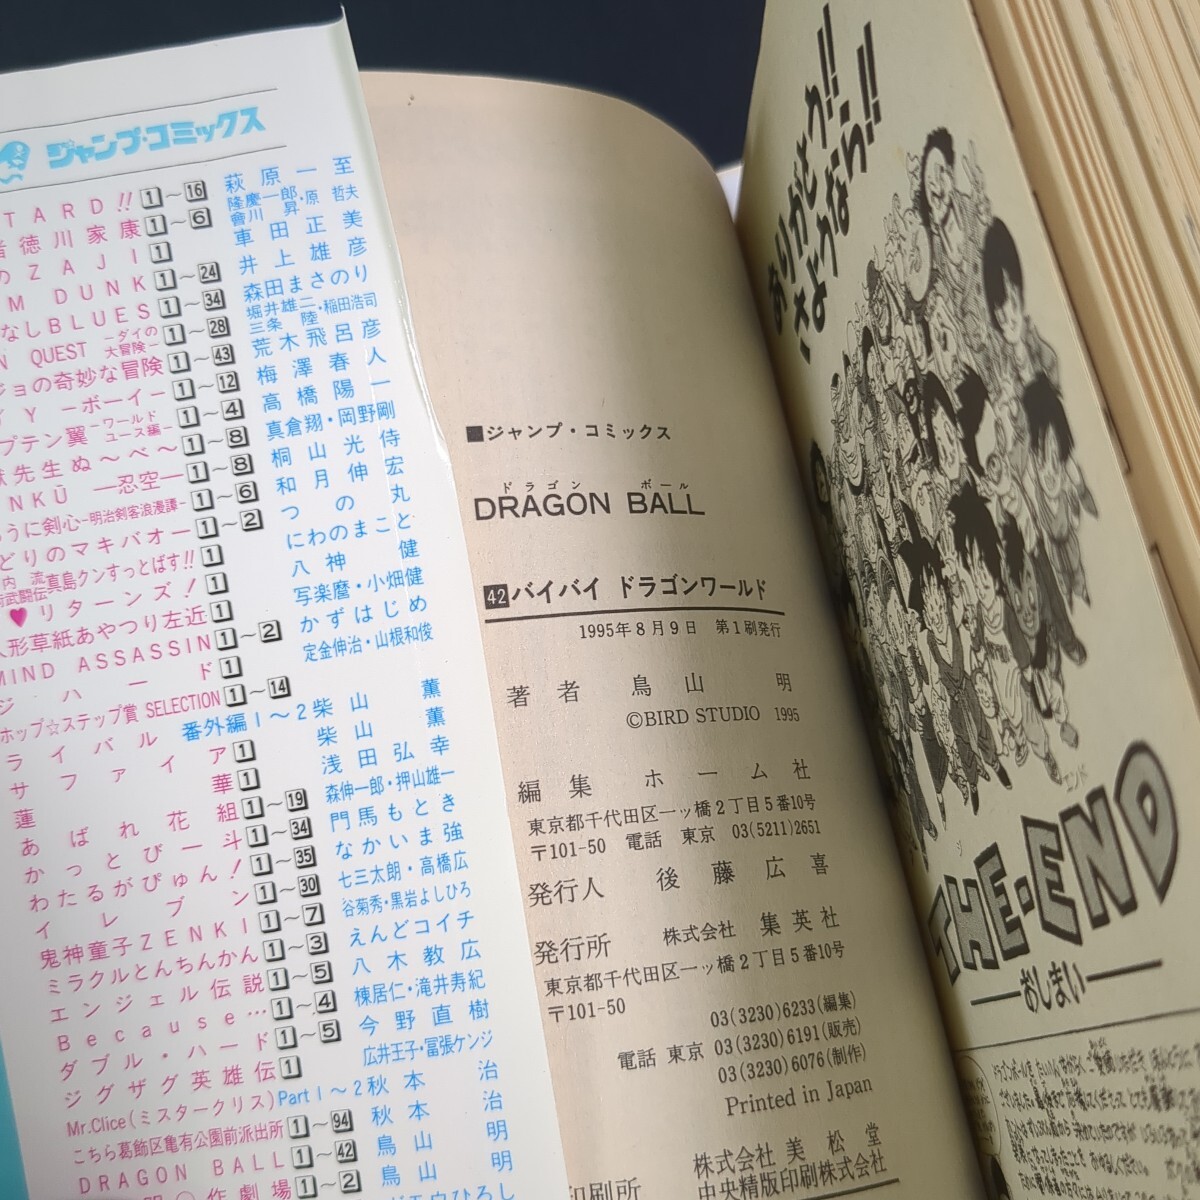 ジャンプ・コミックス
TARD!! 1～16 萩原一至
徳川家康 1～6 隆慶一郎・原哲夫 會川昇
のZAJI 1 車田正美
M DUNK 1～24 井上雄彦
なしBLUES 1～34 森田まさのり
N QUEST ーダイの大冒険ー 1～28 堀井雄二・稲田浩司 三条陸
ジョの奇妙な冒険 1～43 荒木飛呂彦
Y ーボーイー 1～12 梅澤春人
プテン翼 ーワールドユース編ー 1～4 高橋陽一
先生ぬ～べ～ 1～8 真倉翔・岡野剛
NKŪ ―忍空― 1～8 桐山光侍
うに剣心ー明治剣客浪漫譚ー 1～6 和月伸宏
どりのマキバオー 1～2 つの丸
内流 武闘伝真島クンすっとばす!! 1 にわのまこと
♥リターンズ! 1 八神健
人形草紙あやつり左近 1 写楽麿・小畑健
MIND ASSASSIN 1～2 かずはじめ
ジハード 1 定金伸治・山根和俊
ホップ☆ステップ賞 SELECTION 1～14
ライバル 番外編1～2 柴山薫
サファイア 1 柴山薫
蓮華 1 浅田弘幸
あばれ花組 1～19 森伸一郎・押山雄一
かっとび一斗 1～34 門馬もとき
わたるがぴゅん! 1～35 なかいま強
イレブン 1～30 七三太朗・高橋広
鬼神童子ZENKI 1～7 谷菊秀・黒岩よしひろ
ミラクルとんちんかん 1～3 えんどコイチ
エンジェル伝説 1～5 八木教広
Because… 1～4 棟居仁・滝井寿紀
ダブル・ハード 1～5 今野直樹
ジグザグ英雄伝 1 広井王子・冨張ケンジ
Mr.Clice(ミスタークリス) Part1～2 秋本治
こちら葛飾区亀有公園前派出所 1～94 秋本治
DRAGON BALL 1～42 鳥山明
作劇場 1～2 鳥山明
■ジャンプ・コミックス
ドラゴン ボール
DRAGON BALL
42バイバイ ドラゴンワールド
1995年8月9日 第1刷発行
著者 鳥山 明
©BIRD STUDIO 1995
編集 ホーム社
東京都千代田区一ッ橋2丁目5番10号
〒101-50 電話 東京 03(5211)2651
発行人 後藤広喜
発行所 株式会社 集英社
東京都千代田区一ッ橋2丁目5番10号
〒101-50
03(3230)6233(編集)
電話 東京 03(3230)6191(販売)
03(3230)6076(制作)
Printed in Japan
印刷所 株式会社 美松堂
中央精版印刷株式会社
ありがとう!!
さようなら!!
ジ エンド
THE・END
―おしまい―